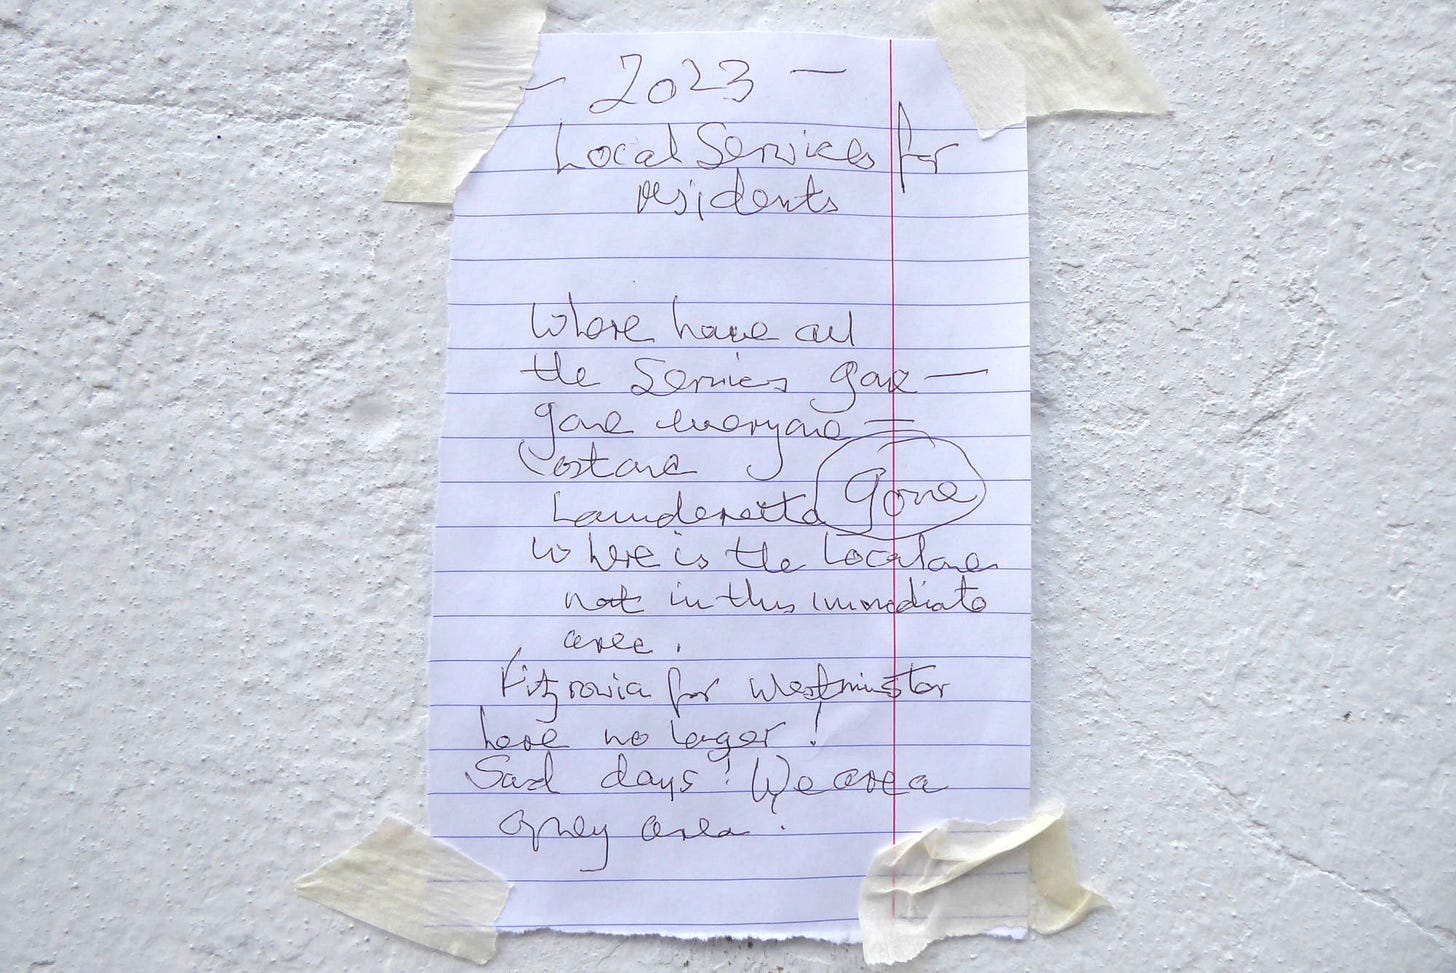 - 2023 -
Local Services for
residents
Where have all
the Services gone —
gone everyone =
Launderette gone
Where is the Local one
not in this immediate
area.
Fitzrovia for Westminster
here no longer!
Sad days! We are a
area!